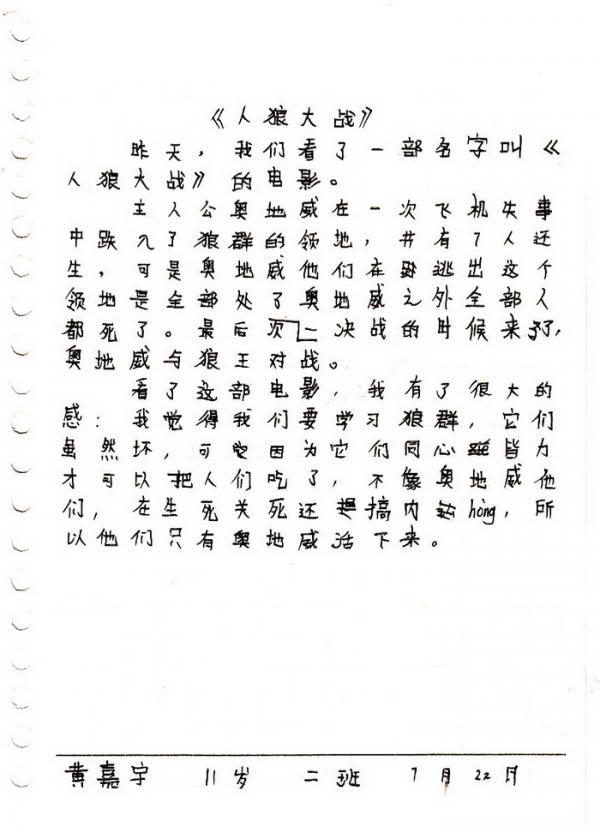 《人狼大战》
昨天，我们看了一部名字叫《
人狼大战》的电影。
主人公奥地威在一次飞机失事
中跌入了狼群的领地，井有7人还
生，可是奥地威他们在逃出这个
领地是全部处了奥地威之外全部人
都死了。最后次一决战的时候来了，
奥地威与狼王对战。
看了这部电影，我有了很大的
感：我觉得我们要学习狼群，它们
虽然坏，可因为它们同心皆力
才可以把人们吃了，不像奥地威他
们，在生死关死还搞内hòng，所
以他们只有奥地威活下来。
黄嘉宇 11岁 二班 7月22日